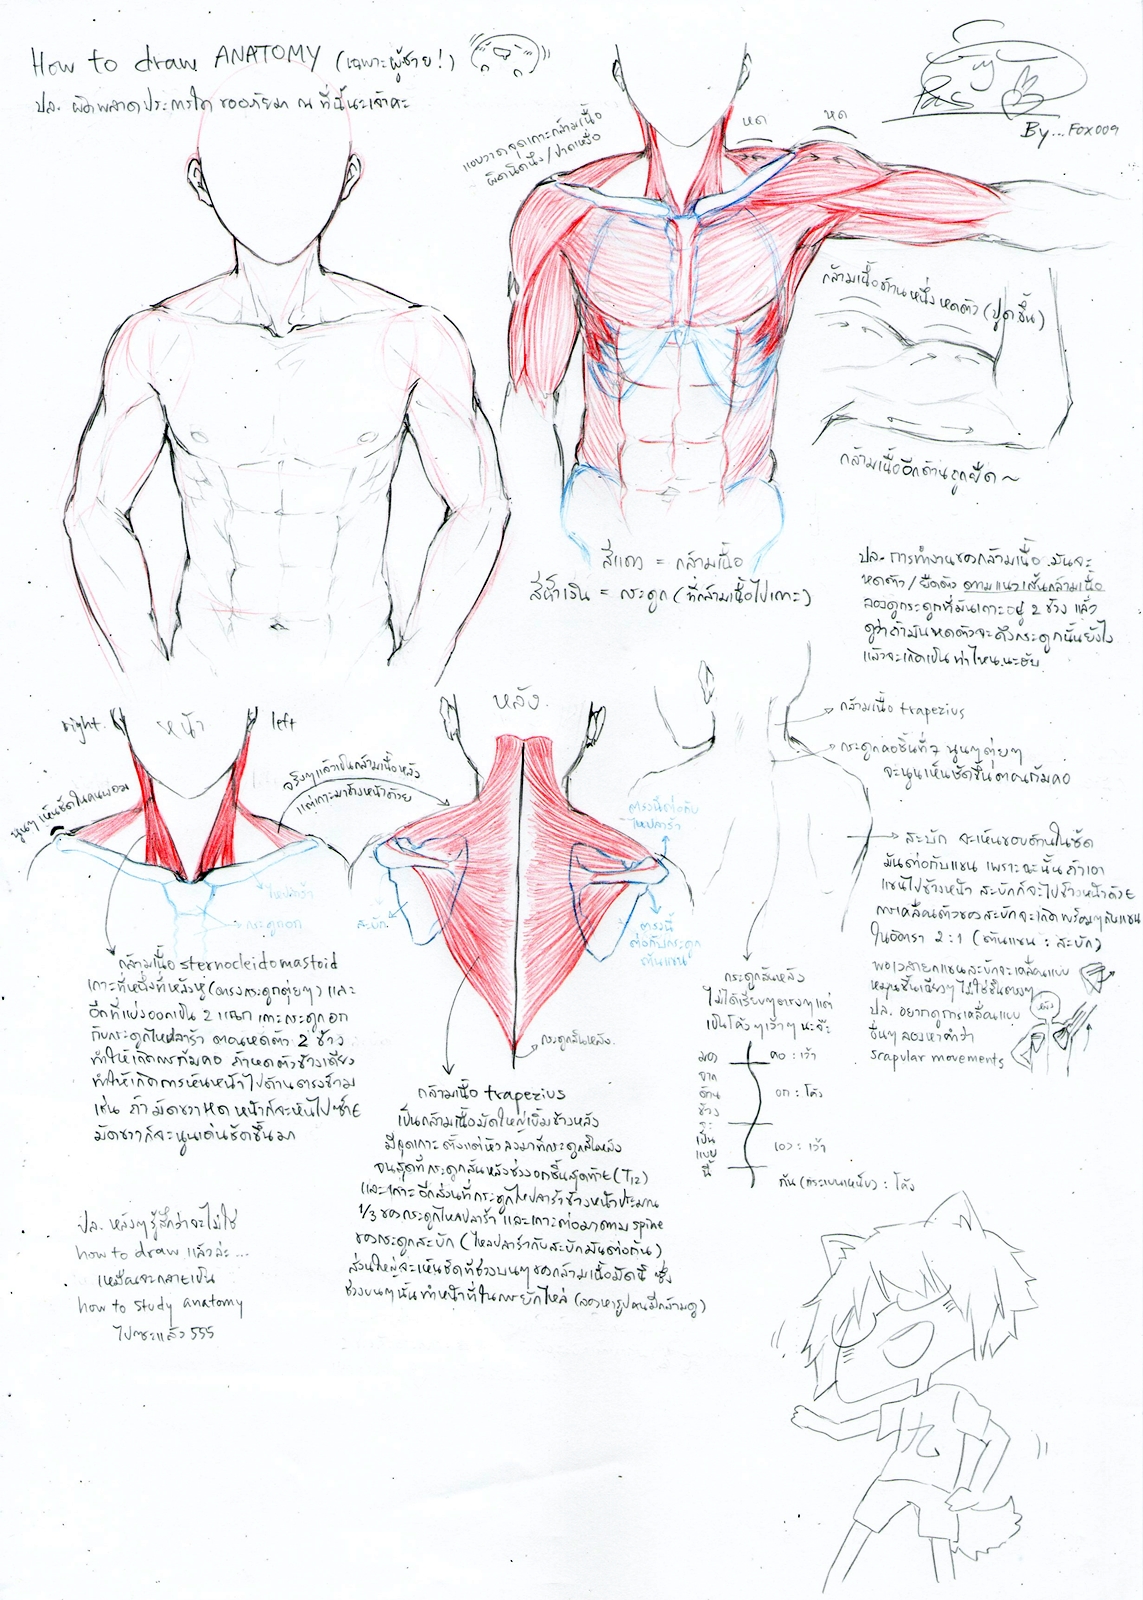 How to draw ANATOMY (เฉพาะผู้ชาย!)
ปล. ผิดพลาดประการใด ขออภัยมา ณ ที่นี้นะเจ้าคะ
By...Fox009
แอบวาดจุดเกาะกล้ามเนื้อ
ผิดนิดนึง/ปาดเหงื่อ
หด
หด
กล้ามเนื้อด้านหนึ่งหดตัว (ปูดขึ้น)
กล้ามเนื้ออีกด้านถูกยืด~
สีแดง = กล้ามเนื้อ
สีน้ำเงิน = กระดูก (ที่กล้ามเนื้อไปเกาะ)
ปล. การทำงานของกล้ามเนื้อ มันจะ
หดตัว/ยืดตัว ตามแนวเส้นกล้ามเนื้อ
ลองดูกระดูกที่มันเกาะอยู่ 2 ข้าง แล้ว
ดูว่าถ้ามันหดตัวจะดึงกระดูกนั้นยังไง
แล้วจะเกิดเป็นท่าไหนนะฮับ
right.
หน้า
left
นูนๆ เห็นชัดในคนผอม
จริงๆแล้วเป็นกล้ามเนื้อหลัง
แต่เกาะมาข้างหน้าด้วย
ไหปลาร้า
กระดูกอก
กล้ามเนื้อ sternocleidomastoid
เกาะที่หนึ่งที่หลังหู (ตรงกระดูกตุ่ยๆ) และ
อีกที่แบ่งออกเป็น 2 แฉก เกาะกระดูกอก
กับกระดูกไหปลาร้า ตอนหดตัว 2 ข้าง
ทำให้เกิดการก้มคอ ถ้าหดตัวข้างเดียว
ทำให้เกิดการหันหน้าไปด้านตรงข้าม
เช่น ถ้ามัดขวาหด หน้าก็จะหันไปซ้าย
มัดขวาก็จะนูนเด่นชัดขึ้นมา
ปล. หลังๆรู้สึกว่าจะไม่ใช่
how to draw แล้วล่ะ...
เหมือนจะกลายเป็น
how to study anatomy
ไปซะแล้ว 555
หลัง.
ตรงนี้ต่อกับ
ไหปลาร้า
สะบัก
ตรงนี้
ต่อกับกระดูก
ต้นแขน
กระดูกสันหลัง.
กล้ามเนื้อ trapezius
เป็นกล้ามเนื้อมัดใหญ่เบิ้มข้างหลัง
มีจุดเกาะตั้งแต่หัวลงมาที่กระดูกสันหลัง
จนสุดที่กระดูกสันหลังช่วงอกชิ้นสุดท้าย (T12)
และเกาะอีกส่วนที่กระดูกไหปลาร้าข้างหน้าประมาณ
1/3 ของกระดูกไหปลาร้า และเกาะต่อมาตาม spine
ของกระดูกสะบัก (ไหปลาร้ากับสะบักมันต่อกัน)
ส่วนใหญ่จะเห็นชัดที่ช่วงบนๆของกล้ามเนื้อมัดนี้ ซึ่ง
ช่วงบนๆนั้นทำหน้าที่ในการยักไหล่ (ลองหารูปคนมีกล้ามดู)
กล้ามเนื้อ trapezius
กระดูกคอชิ้นที่ 7 นูนๆตุ่ยๆ
จะนูนเห็นชัดขึ้นตอนก้มคอ
สะบัก จะเห็นขอบด้านในชัด
มันต่อกับแขน เพราะฉะนั้นถ้าเอา
แขนไปข้างหน้า สะบักก็จะไปข้างหน้าด้วย
การเคลื่อนตัวของสะบักจะเกิดพร้อมๆกับแขน
ในอัตรา 2:1 (ต้นแขน : สะบัก)
พอเวลายกแขนสะบักจะเคลื่อนแบบ
หมุนขึ้นเฉียงๆ ไม่ใช่ขึ้นตรงๆ
ปล. อยากดูการเคลื่อนแบบ
อื่นๆ ลองหาคำว่า
scapular movements
หลัง
กระดูกสันหลัง
ไม่ได้เรียงๆตรงๆแต่
เป็นโค้งๆเว้าๆ นะจ๊ะ
มองจากด้านข้างจะเป็นแบบนี้
คอ : เว้า
อก : โค้ง
เอว : เว้า
ก้น (กระเบนเหน็บ) : โค้ง